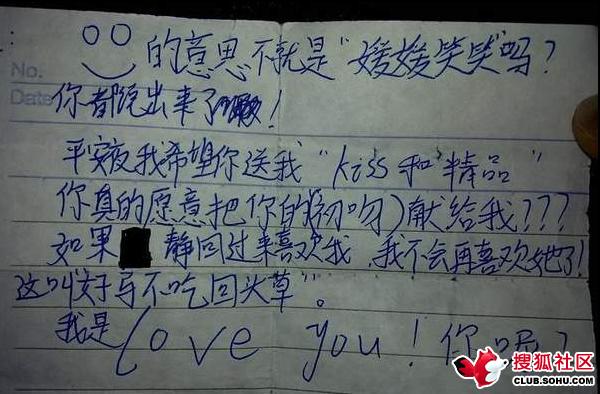 的意思不就是“媛媛笑笑”吗?
No.
Date
你都说出来了!
平安夜我希望你送我“kiss和“精品”
你真的愿意把你的(初吻)献给我???
如果 静回过来喜欢我,我不会再喜欢她了!
这叫“好马不吃回头草”。
我是love you!你呢?
搜狐社区
CLUB.SOHU.COM